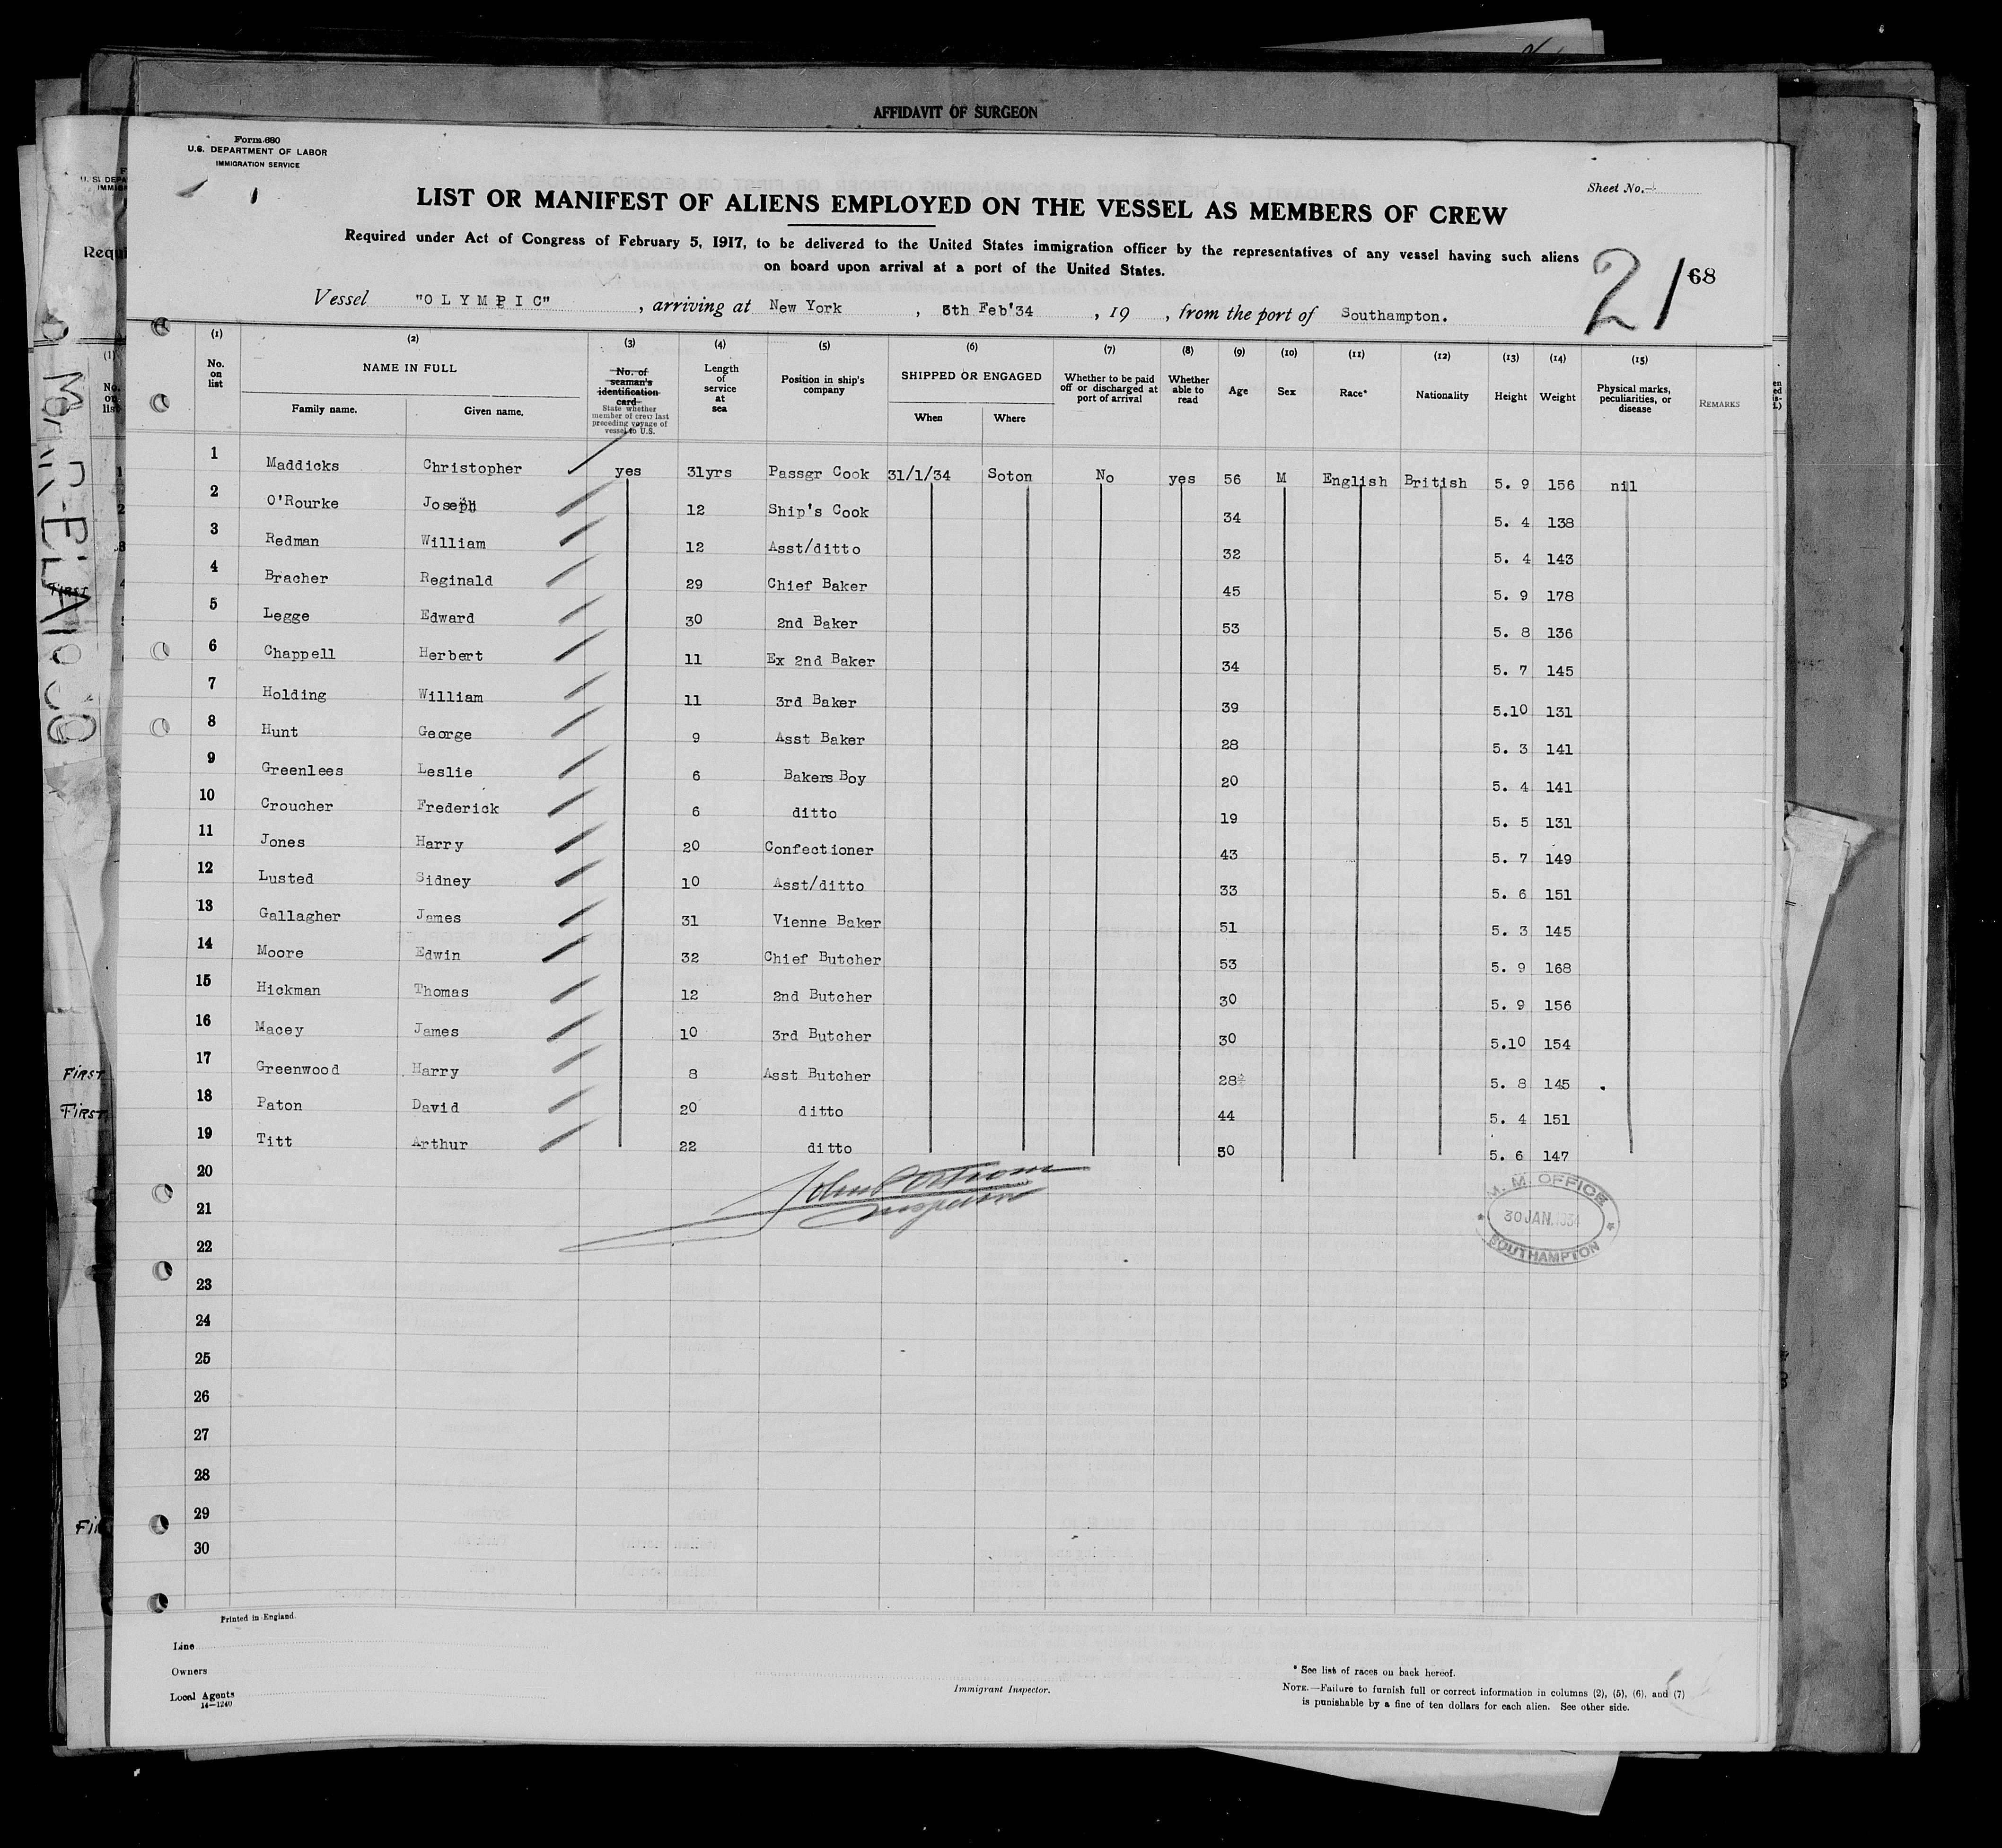 AFFIDAVIT OF SURGEON
Form 680
U.S. DEPARTMENT OF LABOR
IMMIGRATION SERVICE
Sheet No.
LIST OR MANIFEST OF ALIENS EMPLOYED ON THE VESSEL AS MEMBERS OF CREW
Required under Act of Congress of February 5, 1917, to be delivered to the United States immigration officer by the representatives of any vessel having such aliens
on board upon arrival at a port of the United States.
21 68
Vessel "OLYMPIC", arriving at New York, 5th Feb'34, 19 , from the port of Southampton.
(1) (2) (3) (4) (5) (6) (7) (8) (9) (10) (11) (12) (13) (14) (15)
No. on list NAME IN FULL Family name. Given name. No. of seaman's identification card State whether member of crew last preceding voyage of vessel to U.S. Length of service at sea Position in ship's company SHIPPED OR ENGAGED When Where Whether to be paid off or discharged at port of arrival Whether able to read Age Sex Race* Nationality Height Weight Physical marks, peculiarities, or disease REMARKS
1 Maddicks Christopher yes 31yrs Passgr Cook 31/1/34 Soton No yes 56 M English British 5. 9 156 nil
2 O'Rourke Joseph 12 Ship's Cook 34 5. 4 138
3 Redman William 12 Asst/ditto 32 5. 4 143
4 Bracher Reginald 29 Chief Baker 45 5. 9 178
5 Legge Edward 30 2nd Baker 53 5. 8 136
6 Chappell Herbert 11 Ex 2nd Baker 34 5. 7 145
7 Holding William 11 3rd Baker 39 5.10 131
8 Hunt George 9 Asst Baker 28 5. 3 141
9 Greenlees Leslie 6 Bakers Boy 20 5. 4 141
10 Croucher Frederick 6 ditto 19 5. 5 131
11 Jones Harry 20 Confectioner 43 5. 7 149
12 Lusted Sidney 10 Asst/ditto 33 5. 6 151
13 Gallagher James 31 Vienne Baker 51 5. 3 145
14 Moore Edwin 32 Chief Butcher 53 5. 9 168
15 Hickman Thomas 12 2nd Butcher 30 5. 9 156
16 Macey James 10 3rd Butcher 30 5.10 154
17 Greenwood Harry 8 Asst Butcher 28 5. 8 145
18 Paton David 20 ditto 44 5. 4 151
19 Titt Arthur 22 ditto 50 5. 6 147
20
21
22
23
24
25
26
27
28
29
30
M. M. OFFICE
30 JAN. 1934
SOUTHAMPTON
FIRST
FIRST
FIRST
Printed in England.
Line
Owners
Local Agents
14—1240
Immigrant Inspector.
* See list of races on back hereof.
NOTE.—Failure to furnish full or correct information in columns (2), (5), (6), and (7)
is punishable by a fine of ten dollars for each alien. See other side.